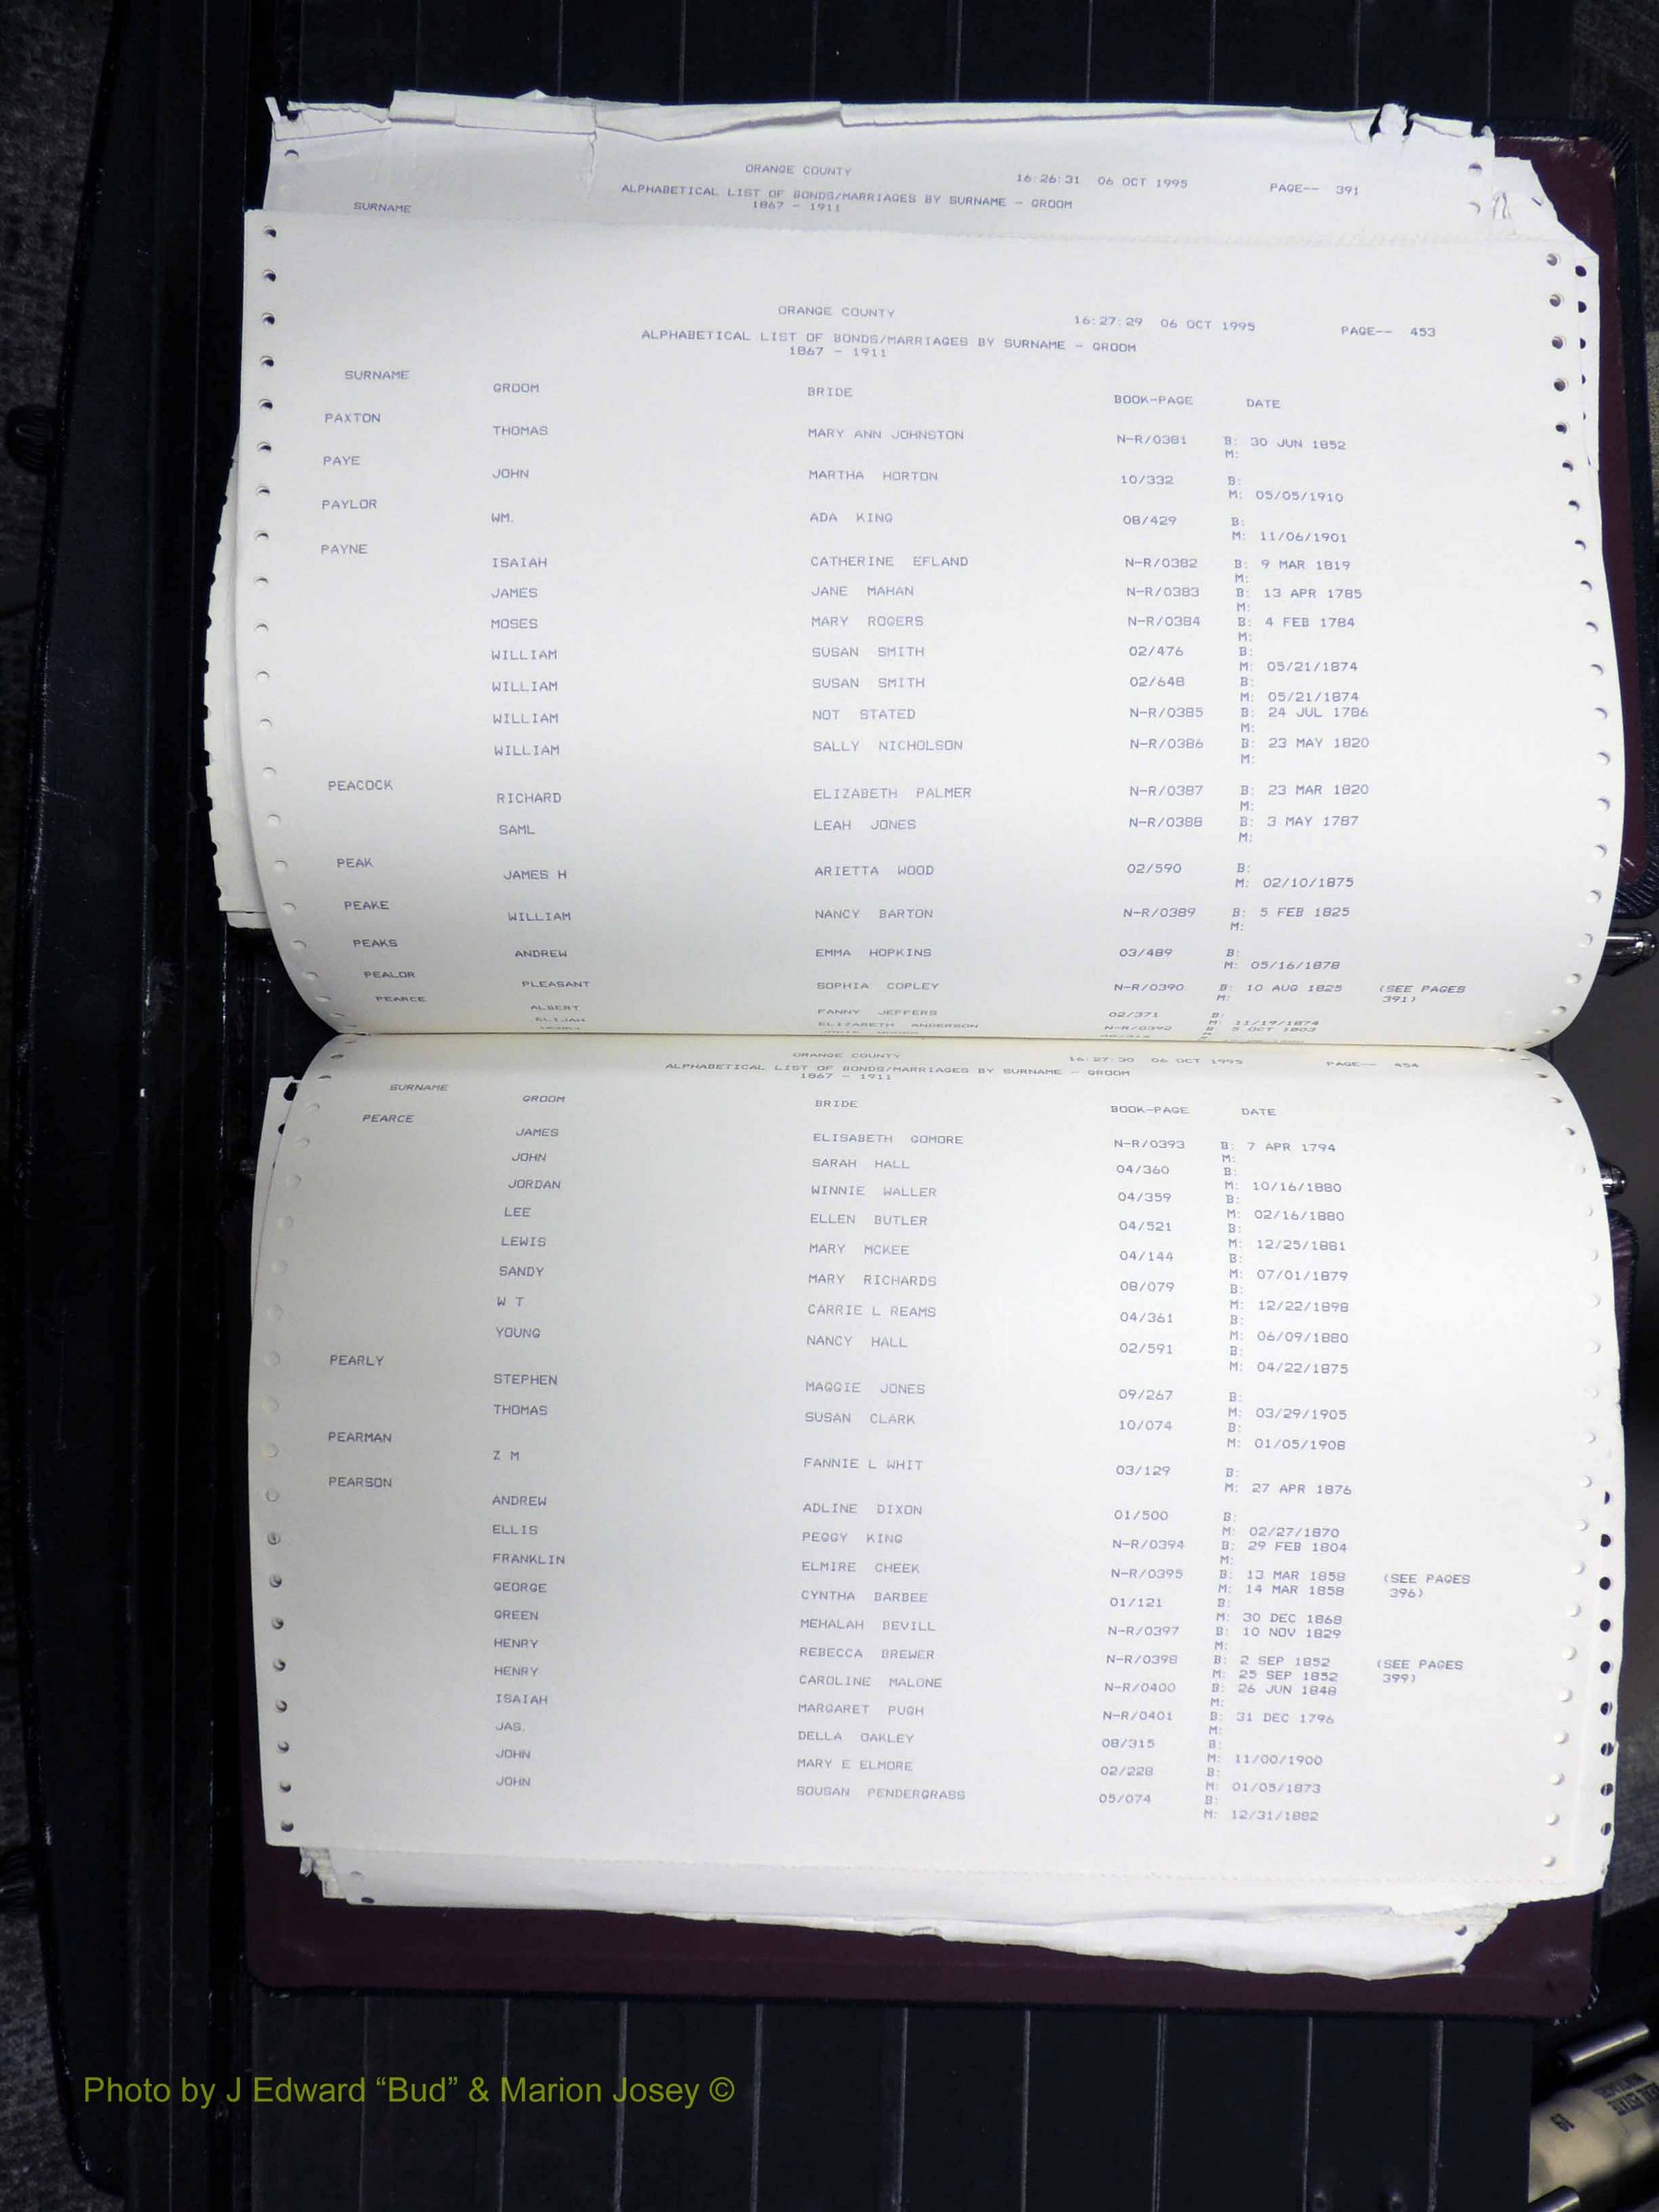 ORANGE COUNTY 16:26:31 06 OCT 1995 PAGE-- 391
ALPHABETICAL LIST OF BONDS/MARRIAGES BY SURNAME - GROOM
1867 - 1911
SURNAME
ORANGE COUNTY 16:27:29 06 OCT 1995 PAGE-- 453
ALPHABETICAL LIST OF BONDS/MARRIAGES BY SURNAME - GROOM
1867 - 1911
SURNAME GROOM BRIDE BOOK-PAGE DATE
PAXTON
THOMAS MARY ANN JOHNSTON N-R/0381 B: 30 JUN 1852
M:
PAYE
JOHN MARTHA HORTON 10/332 B:
M: 05/05/1910
PAYLOR
WM. ADA KING 08/429 B:
M: 11/06/1901
PAYNE
ISAIAH CATHERINE EFLAND N-R/0382 B: 9 MAR 1819
M:
JAMES JANE MAHAN N-R/0383 B: 13 APR 1785
M:
MOSES MARY ROGERS N-R/0384 B: 4 FEB 1784
M:
WILLIAM SUSAN SMITH 02/476 B:
M: 05/21/1874
WILLIAM SUSAN SMITH 02/648 B:
M: 05/21/1874
WILLIAM NOT STATED N-R/0385 B: 24 JUL 1786
M:
WILLIAM SALLY NICHOLSON N-R/0386 B: 23 MAY 1820
M:
PEACOCK
RICHARD ELIZABETH PALMER N-R/0387 B: 23 MAR 1820
M:
SAML LEAH JONES N-R/0388 B: 3 MAY 1787
M:
PEAK
JAMES H ARIETTA WOOD 02/590 B:
M: 02/10/1875
PEAKE
WILLIAM NANCY BARTON N-R/0389 B: 5 FEB 1825
M:
PEAKS
ANDREW EMMA HOPKINS 03/489 B:
M: 05/16/1878
PEALOR
PLEASANT SOPHIA COPLEY N-R/0390 B: 10 AUG 1825 (SEE PAGES
M: 391)
PEARCE
ALBERT FANNY JEFFERS 02/371 B:
M: 11/19/1874
ELIJAH ELIZABETH ANDERSON N-R/0392 B: 5 OCT 1803
ORANGE COUNTY 16:27:30 06 OCT 1995 PAGE-- 454
ALPHABETICAL LIST OF BONDS/MARRIAGES BY SURNAME - GROOM
1867 - 1911
SURNAME GROOM BRIDE BOOK-PAGE DATE
PEARCE
JAMES ELISABETH GOMORE N-R/0393 B: 7 APR 1794
M:
JOHN SARAH HALL 04/360 B:
M: 10/16/1880
JORDAN WINNIE WALLER 04/359 B:
M: 02/16/1880
LEE ELLEN BUTLER 04/521 B:
M: 12/25/1881
LEWIS MARY MCKEE 04/144 B:
M: 07/01/1879
SANDY MARY RICHARDS 08/079 B:
M: 12/22/1898
W T CARRIE L REAMS 04/361 B:
M: 06/09/1880
YOUNG NANCY HALL 02/591 B:
M: 04/22/1875
PEARLY
STEPHEN MAGGIE JONES 09/267 B:
M: 03/29/1905
THOMAS SUSAN CLARK 10/074 B:
M: 01/05/1908
PEARMAN
Z M FANNIE L WHIT 03/129 B:
M: 27 APR 1876
PEARSON
ANDREW ADLINE DIXON 01/500 B:
M: 02/27/1870
ELLIS PEGGY KING N-R/0394 B: 29 FEB 1804
M:
FRANKLIN ELMIRE CHEEK N-R/0395 B: 13 MAR 1858 (SEE PAGES
M: 14 MAR 1858 396)
GEORGE CYNTHA BARBEE 01/121 B:
M: 30 DEC 1868
GREEN MEHALAH BEVILL N-R/0397 B: 10 NOV 1829
M:
HENRY REBECCA BREWER N-R/0398 B: 2 SEP 1852 (SEE PAGES
M: 25 SEP 1852 399)
HENRY CAROLINE MALONE N-R/0400 B: 26 JUN 1848
M:
ISAIAH MARGARET PUGH N-R/0401 B: 31 DEC 1796
M:
JAS. DELLA OAKLEY 08/315 B:
M: 11/00/1900
JOHN MARY E ELMORE 02/228 B:
M: 01/05/1873
JOHN SOUSAN PENDERGRASS 05/074 B:
M: 12/31/1882
Photo by J Edward “Bud” & Marion Josey ©